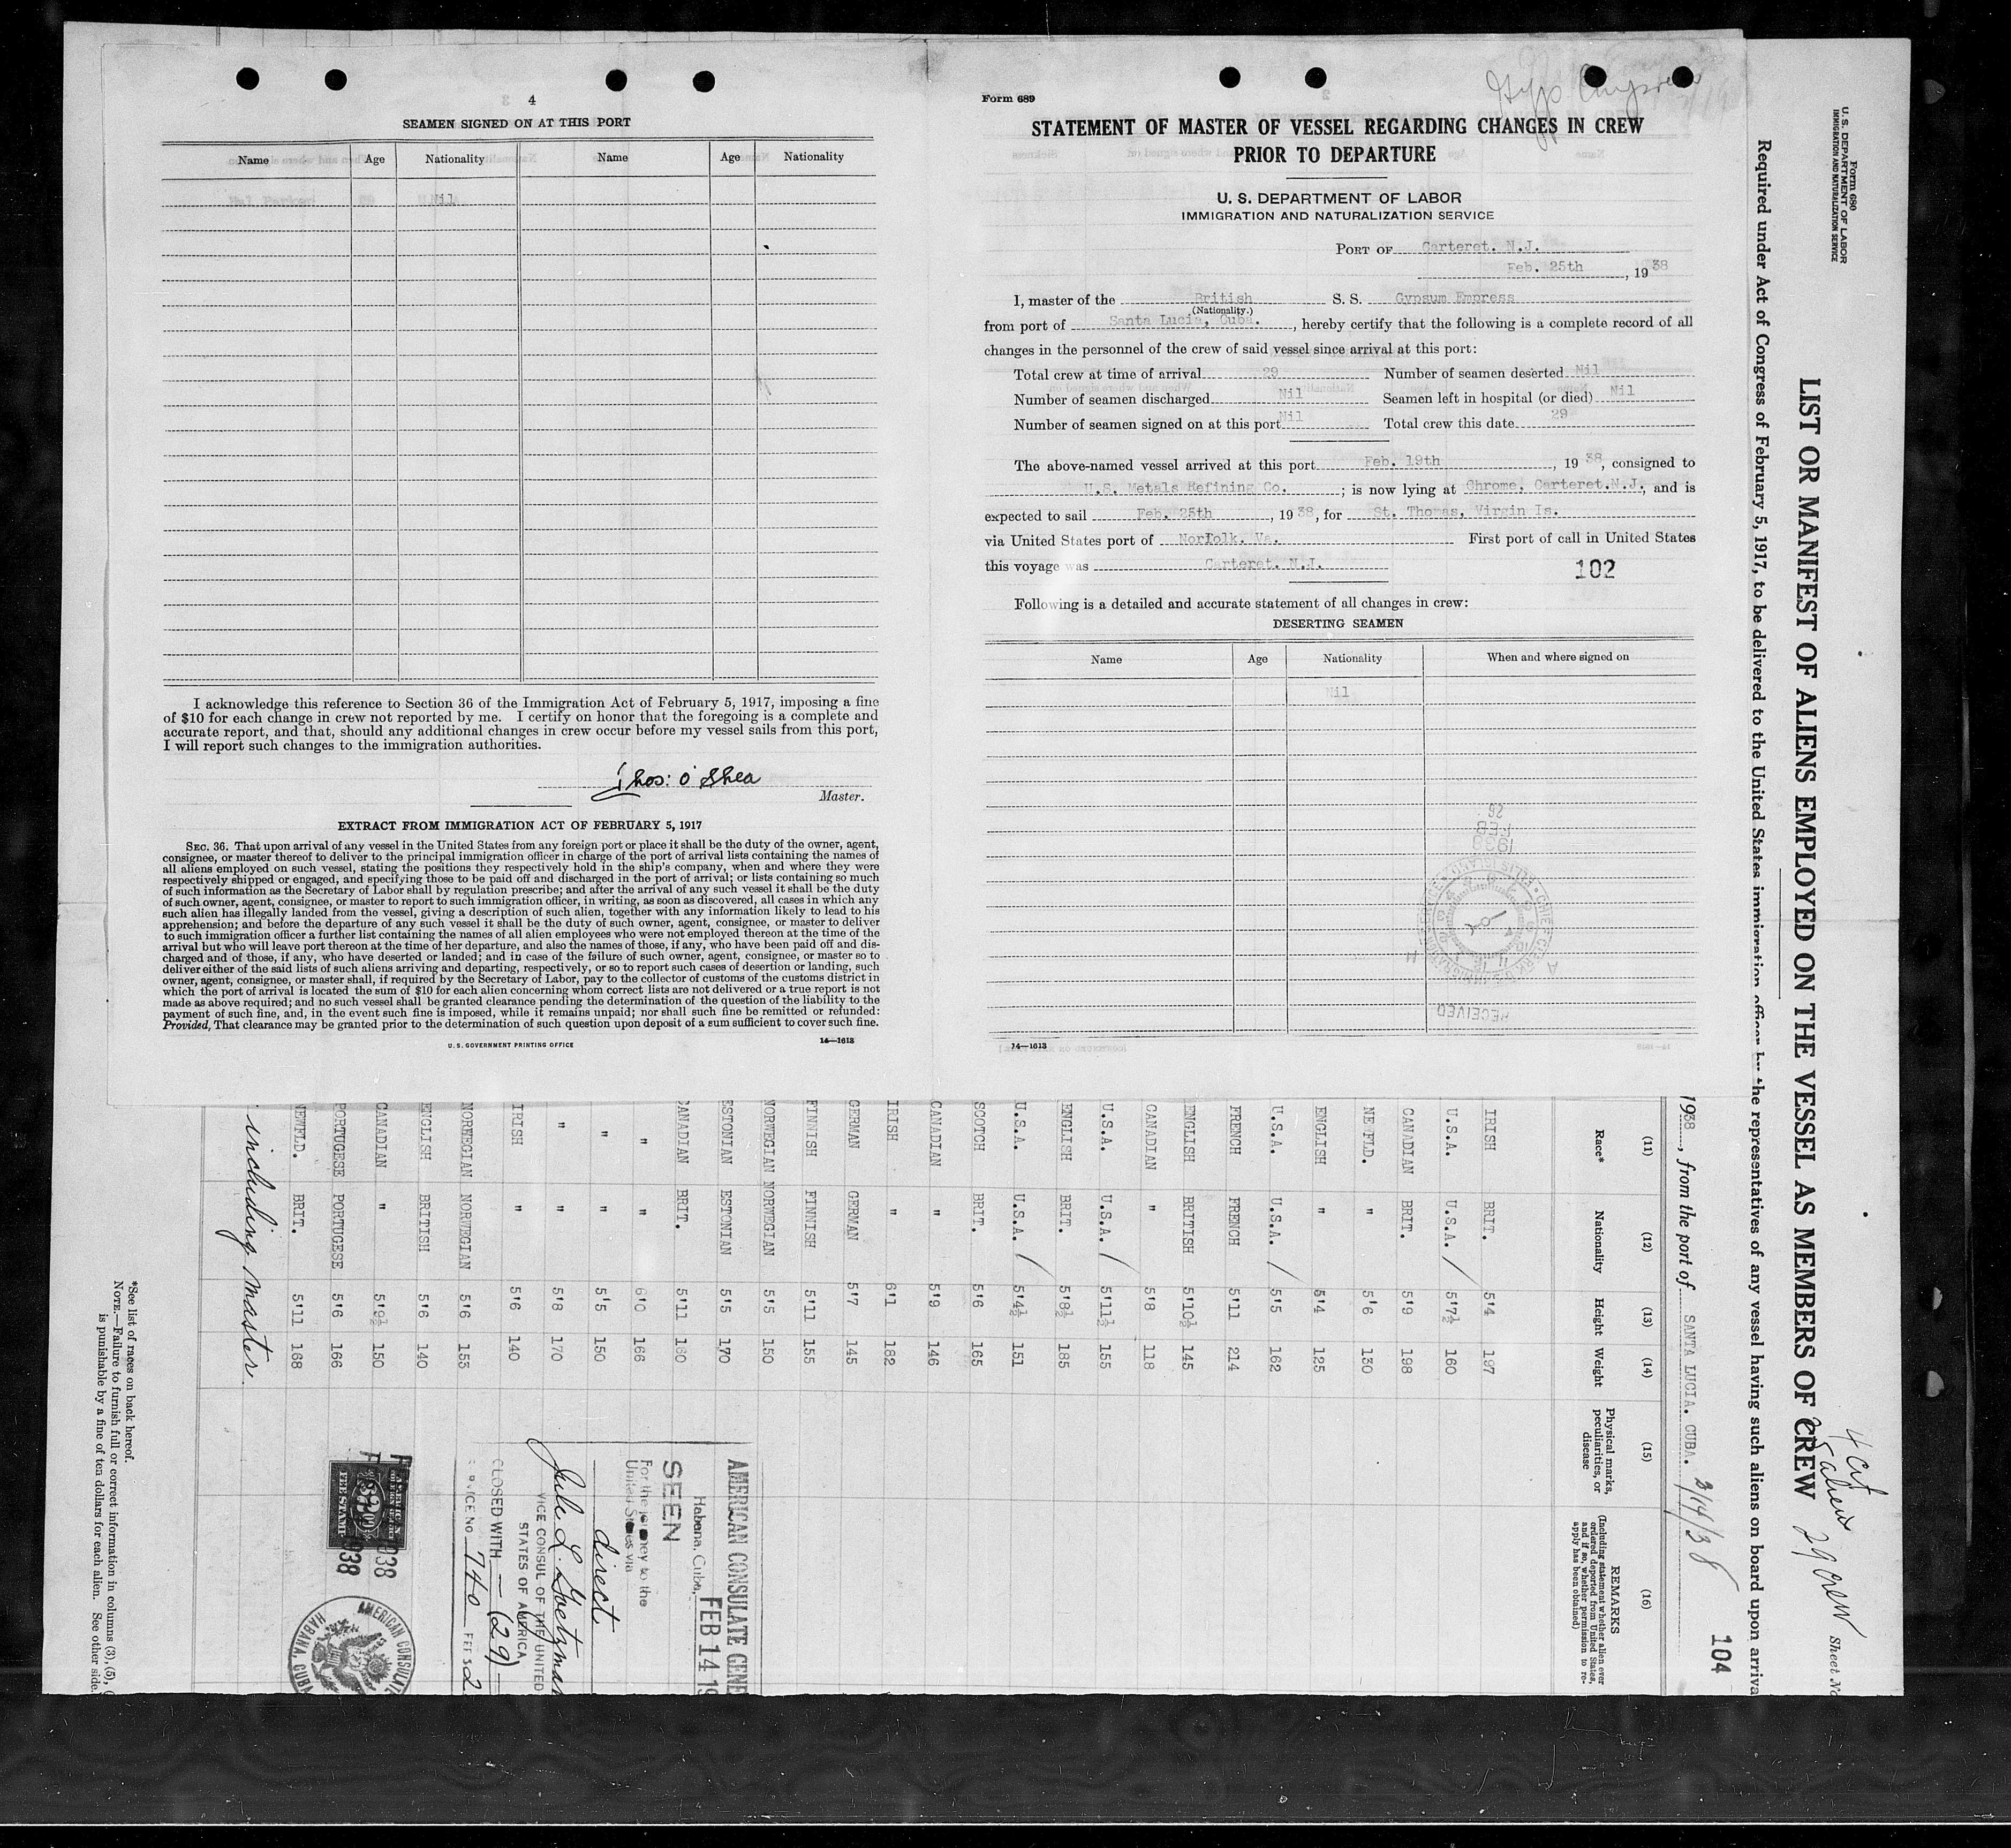 4
SEAMEN SIGNED ON AT THIS PORT
Name Age Nationality Name Age Nationality
Nil
I acknowledge this reference to Section 36 of the Immigration Act of February 5, 1917, imposing a fine
of $10 for each change in crew not reported by me. I certify on honor that the foregoing is a complete and
accurate report, and that, should any additional changes in crew occur before my vessel sails from this port,
I will report such changes to the immigration authorities.
Thos: O'Shea
Master.
EXTRACT FROM IMMIGRATION ACT OF FEBRUARY 5, 1917
SEC. 36. That upon arrival of any vessel in the United States from any foreign port or place it shall be the duty of the owner, agent,
consignee, or master thereof to deliver to the principal immigration officer in charge of the port of arrival lists containing the names of
all aliens employed on such vessel, stating the positions they respectively hold in the ship's company, when and where they were
respectively shipped or engaged, and specifying those to be paid off and discharged in the port of arrival; or lists containing so much
of such information as the Secretary of Labor shall by regulation prescribe; and after the arrival of any such vessel it shall be the duty
of such owner, agent, consignee, or master to report to such immigration officer, in writing, as soon as discovered, all cases in which any
such alien has illegally landed from the vessel, giving a description of such alien, together with any information likely to lead to his
apprehension; and before the departure of any such vessel it shall be the duty of such owner, agent, consignee, or master to deliver
to such immigration officer a further list containing the names of all alien employees who were not employed thereon at the time of the
arrival but who will leave port thereon at the time of her departure, and also the names of those, if any, who have been paid off and dis-
charged and of those, if any, who have deserted or landed; and in case of the failure of such owner, agent, consignee, or master so to
deliver either of the said lists of such aliens arriving and departing, respectively, or so to report such cases of desertion or landing, such
owner, agent, consignee, or master shall, if required by the Secretary of Labor, pay to the collector of customs of the customs district in
which the port of arrival is located the sum of $10 for each alien concerning whom correct lists are not delivered or a true report is not
made as above required; and no such vessel shall be granted clearance pending the determination of the question of the liability to the
payment of such fine, and, in the event such fine is imposed, while it remains unpaid; nor shall such fine be remitted or refunded:
Provided, That clearance may be granted prior to the determination of such question upon deposit of a sum sufficient to cover such fine.
U. S. GOVERNMENT PRINTING OFFICE 14—1613
Form 689
STATEMENT OF MASTER OF VESSEL REGARDING CHANGES IN CREW
PRIOR TO DEPARTURE
U. S. DEPARTMENT OF LABOR
IMMIGRATION AND NATURALIZATION SERVICE
PORT OF Carteret. N.J.
Feb. 25th, 1938
I, master of the British S. S. Gypsum Empress
(Nationality.)
from port of Santa Lucia, Cuba., hereby certify that the following is a complete record of all
changes in the personnel of the crew of said vessel since arrival at this port:
Total crew at time of arrival 29 Number of seamen deserted Nil
Number of seamen discharged Nil Seamen left in hospital (or died) Nil
Number of seamen signed on at this port Nil Total crew this date 29
The above-named vessel arrived at this port Feb. 19th, 1938, consigned to
U.S. Metals Refining Co.; is now lying at Chrome. Carteret.N.J., and is
expected to sail Feb. 25th, 1938, for St. Thomas, Virgin Is.
via United States port of Norfolk. Va. First port of call in United States
this voyage was Carteret. N.J.
102
Following is a detailed and accurate statement of all changes in crew:
DESERTING SEAMEN
Name Age Nationality When and where signed on
Nil
26
FEB
1938
RECEIVED
14—1613
Form 680
U. S. DEPARTMENT OF LABOR
IMMIGRATION AND NATURALIZATION SERVICE
LIST OR MANIFEST OF ALIENS EMPLOYED ON THE VESSEL AS MEMBERS OF CREW
4 cit
25 aliens
29 crew
Sheet No
Required under Act of Congress of February 5, 1917, to be delivered to the United States immigration officer by the representatives of any vessel having such aliens on board upon arriva
104
1938, from the port of SANTA LUCIA. CUBA. 2/14/38
(11) (12) (13) (14) (15) (16)
Race* Nationality Height Weight Physical marks, peculiarities, or disease REMARKS
(Including statement whether alien ever ordered deported from United States, and if so, whether permission to re-apply has been obtained)
IRISH BRIT. 5'4 197
U.S.A. U.S.A. / 5'7½ 160
CANADIAN BRIT. 5'9 198
NE FLD. " 5'6 130
ENGLISH " 5'4 125
U.S.A. U.S.A. / 5'5 162
FRENCH FRENCH 5'11 214
ENGLISH BRITISH 5'10½ 145
CANADIAN " 5'8 118
U.S.A. U.S.A. / 5'11½ 155
ENGLISH BRIT. 5'8½ 185
U.S.A. U.S.A. / 5'4½ 151
SCOTCH BRIT. 5'6 165
CANADIAN " 5'9 146
IRISH " 6'1 182
GERMAN GERMAN 5'7 145
FINNISH FINNISH 5'11 155
NORWEGIAN NORWEGIAN 5'5 150
ESTONIAN ESTONIAN 5'5 170
CANADIAN BRIT. 5'11 160
" " 6'0 166
" " 5'5 150
" " 5'8 170
IRISH " 5'6 140
NORWEGIAN NORWEGIAN 5'6 153
ENGLISH BRITISH 5'6 140
CANADIAN " 5'9½ 150
PORTUGESE PORTUGESE 5'6 166
NEWFLD. BRIT. 5'11 168
including master.
AMERICAN CONSULATE GENE
Habana, Cuba, FEB 14 19
SEEN
For the journey to the
United States via
direct.
VICE CONSUL OF THE UNITED
STATES OF AMERICA
CLOSED WITH — (29) —
SERVICE No 740 FEE $ 2
FEE STAMP
AMERICAN CONSULATE
HABANA, CUBA
*See list of races on back hereof.
NOTE.—Failure to furnish full or correct information in columns (3), (5), (
is punishable by a fine of ten dollars for each alien. See other side.